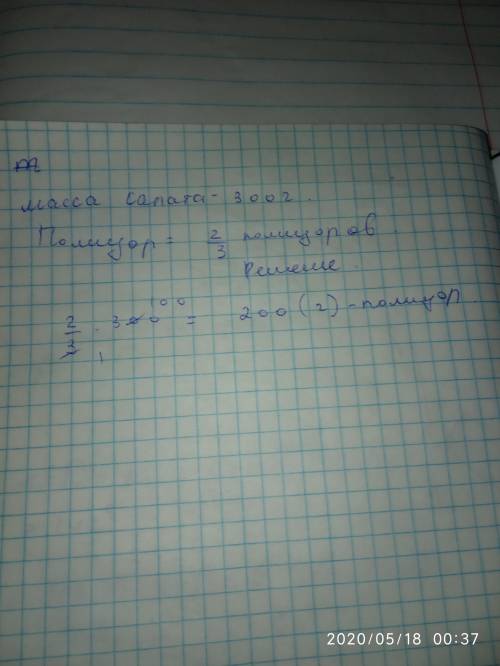 m
масса салата - 300г.
Помидор = 2/3 помидоров
Решение.
2/3 · 300 100 = 200 (г) - помидор
1
2020/05/18 00:37